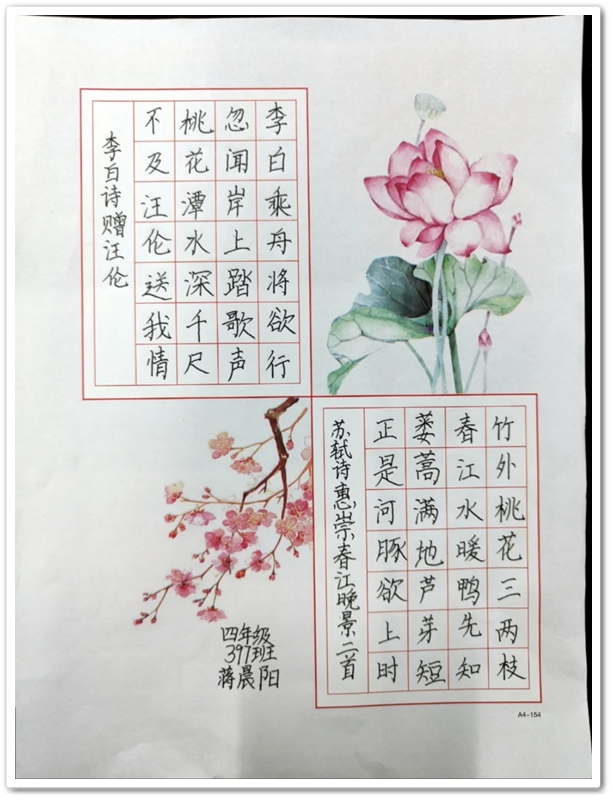 李白乘舟将欲行
忽闻岸上踏歌声
桃花潭水深千尺
不及汪伦送我情
李白诗赠汪伦
竹外桃花三两枝
春江水暖鸭先知
蒌蒿满地芦芽短
正是河豚欲上时
苏轼诗惠崇春江晚景二首
四年级
397班
蒋晨阳
A4-154